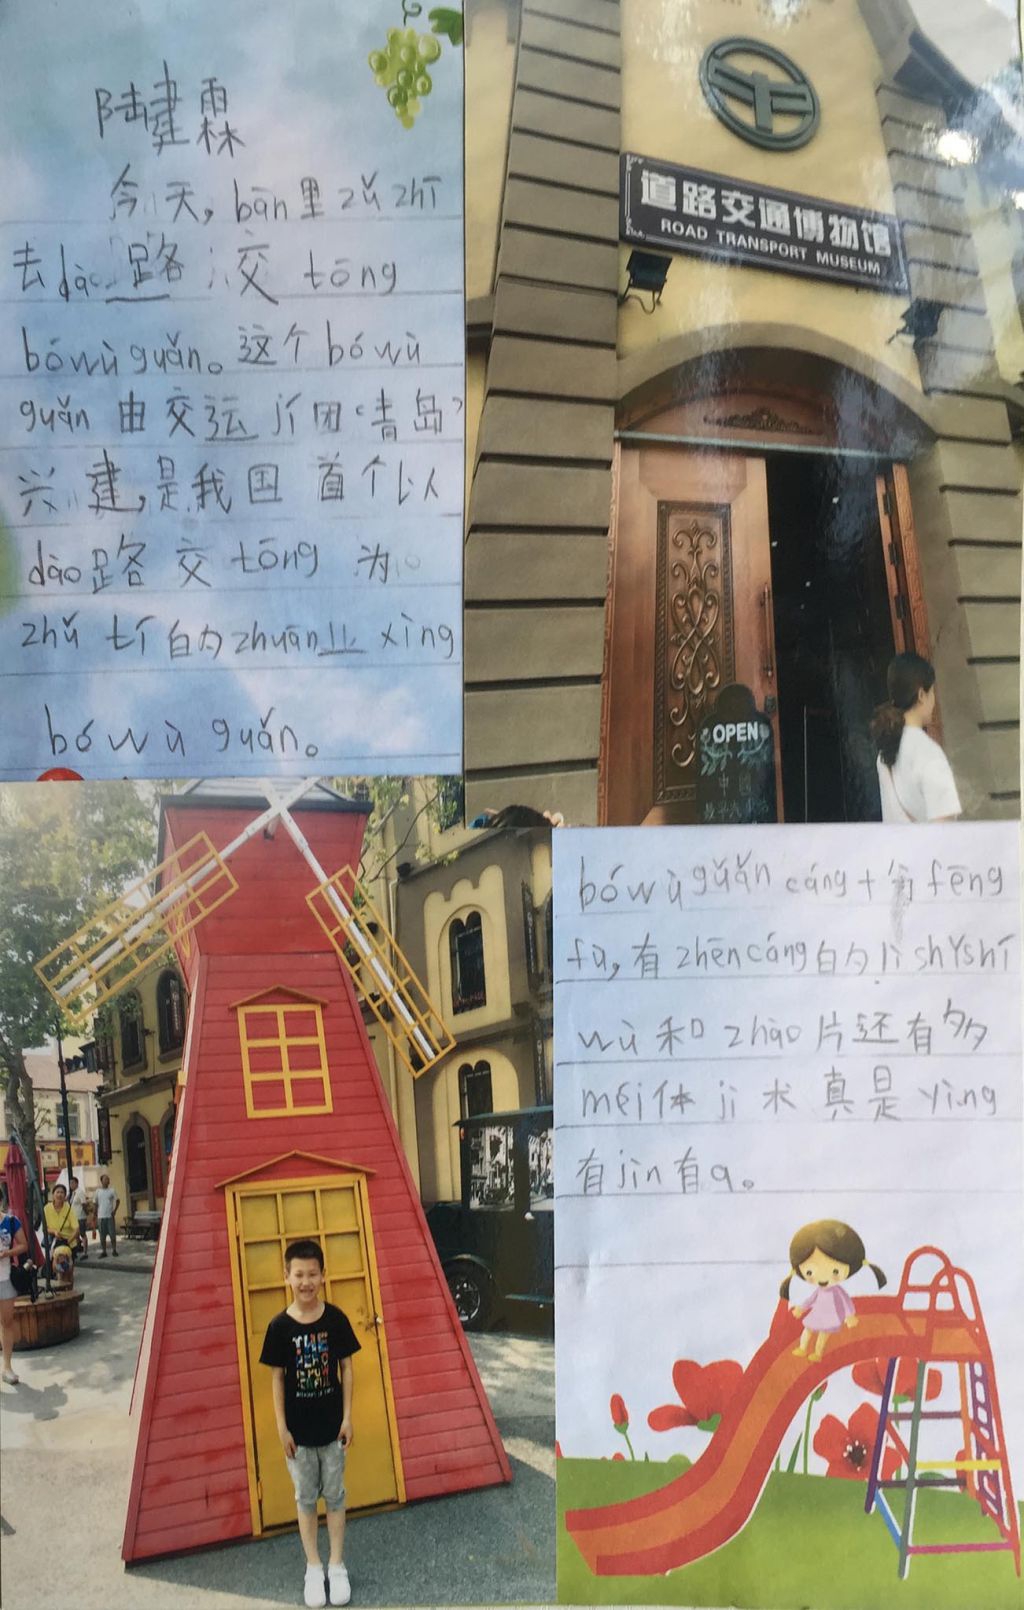 陆建霖
今天,bān里zǔ zhī
去dào路交tōng
bówù guǎn。这个bówù
guǎn由交运jí团“青岛”
兴建,是我国首个以
dào路交tōng为
zhǔ tí的zhuān业xìng
bówù guǎn。
道路交通博物馆
ROAD TRANSPORT MUSEUM
OPEN
bówùguǎn cáng十分fēng
fù,有zhēncáng的lì shǐshí
wù和zhào片还有多
méi体jì术真是yìng
有jìn有a。
THE